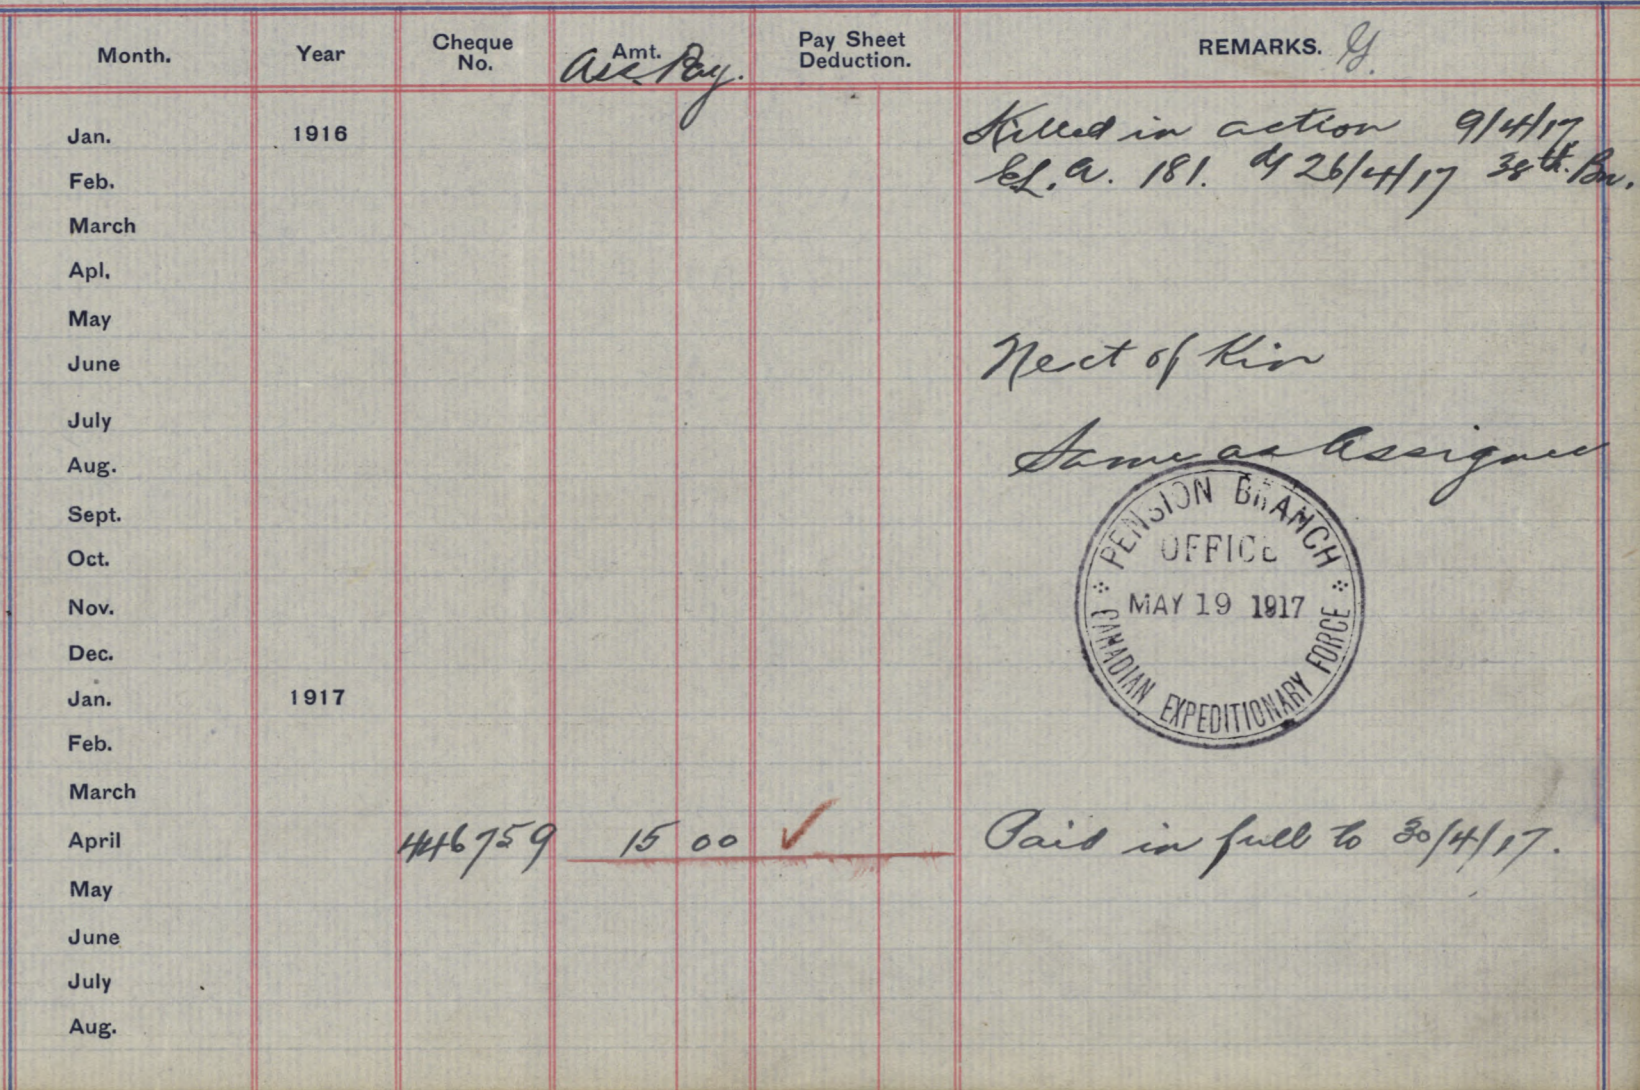 Month. Year Cheque No. Amt. Pay Sheet Deduction. REMARKS. G.
Ass. Pay.
Jan. 1916 Killed in action 9/4/17
Feb. CL. A. 181. d/ 26/4/17 38th. Bn.
March
Apl.
May
June Next of Kin
July
Aug. Same as Assignee
Sept.
Oct.
Nov.
Dec.
PENSION BRANCH
OFFICE
MAY 19 1917
CANADIAN EXPEDITIONARY FORCE
Jan. 1917
Feb.
March
April 446759 15 00 ✓ Paid in full to 30/4/17.
May
June
July
Aug.